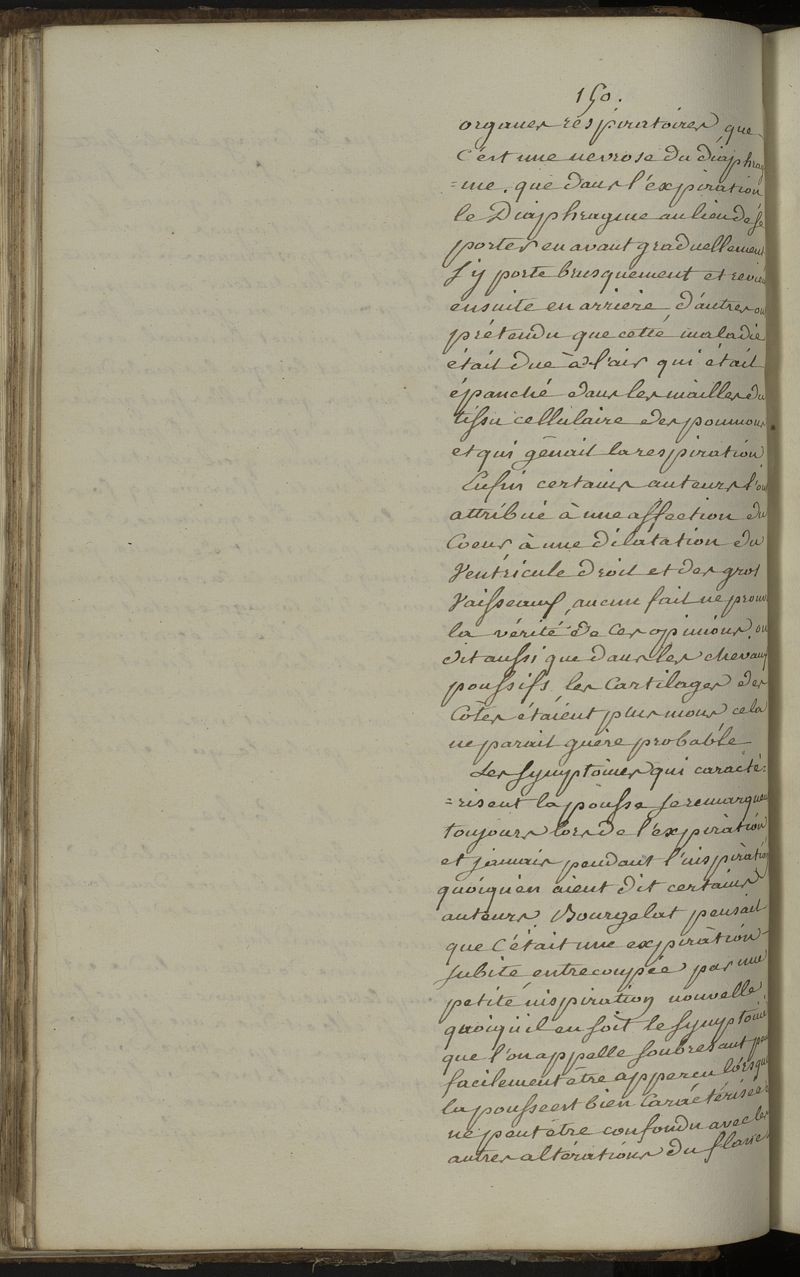 150.
organes respiratoires, que
C'est une nevrose du diaphrag
=me. que dans l'expiration
le Diaphragme au lieu de se
porter en avant graduellement
s'y porte brusquement et revient
ensuite en arriere, d'autres on
prétendu que cette maladie
était due à l'air qui était
épanché dans les mailles du
tissu cellulaire des poumons
et qui gênait la respiration
Enfin certains auteurs l'on
attribué à une affection du
Coeur à une dilatation du
Ventricule droit et des gros
Vaisseaux, aucun fait ne prouve
la vérité de ces opinions. on
dit aussi que dans les chevaux
poussifs, les Cartilages des
Côtes étaient plus mous cela
ne parait guère probable
Les symptômes qui caracté=
=risent la pousse se remarquent
toujours lors de l'expiration
et jamais pendant l'inspiration
quoiqu'en aient dit certains
auteurs. Bourgelat pensait
que C'était une expiration
subite entrecoupée par une
petite inspiration nouvelle,
quoiqu'il en soit le symptôme
que l'on appelle soubresaut peu
facilement être apperçu lorsque
la pousse est bien Caractérisée
ne peut être confondu avec les
autres altérations du flanc